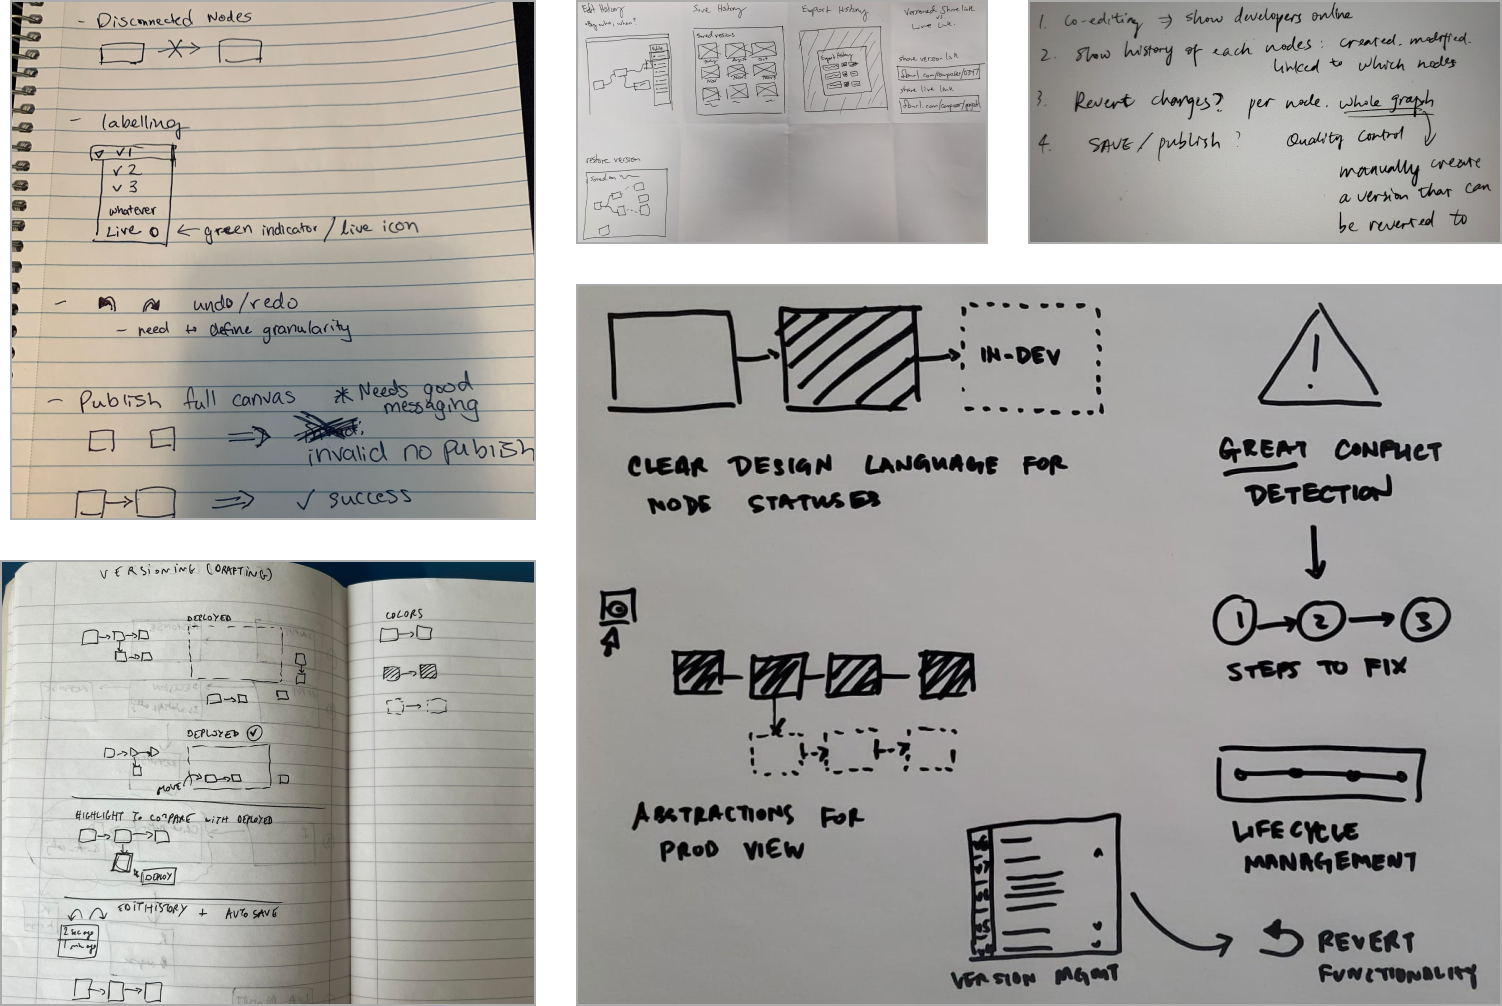 - Disconnected Nodes
- labelling
v1
v2
v3
whatever
Live
green indicator / live icon
- undo/redo
- need to define granularity
- Publish full canvas
* Needs good
messaging
invalid no publish
✓ success
Edit History
Save History
Export History
Versioned Share link
vs
Live link
Saved versions
Export History
share version link
share live link
restore version
1. co-editing ⇒ show developers online
2. show history of each nodes: created, modified.
linked to which nodes
3. Revert changes? per node. whole graph
4. SAVE / publish? Quality control
manually create
a version that can
be reverted to
VERSIONING (DRAFTING)
DEPLOYED
COLORS
DEPLOYED ✓
MOVE
HIGHLIGHT TO COMPARE WITH DEPLOYED
DEPLOY
EDIT HISTORY + AUTO SAVE
2 sec ago
1 min ago
IN-DEV
!
CLEAR DESIGN LANGUAGE FOR
NODE STATUSES
GREAT CONFLICT
DETECTION
1 2 3
STEPS TO FIX
ABSTRACTIONS FOR
PROD VIEW
LIFECYCLE
MANAGEMENT
VERSION MGMT
REVERT
FUNCTIONALITY